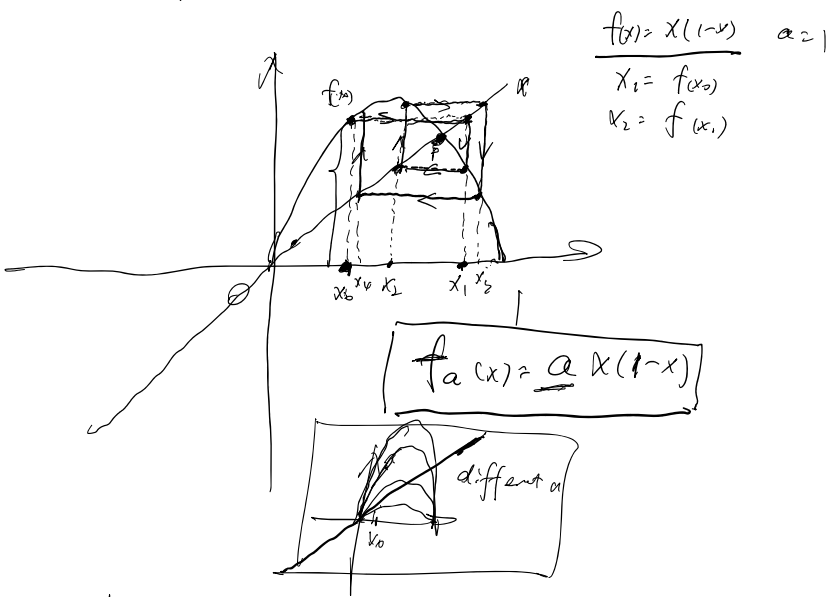 f(x) = x(1-x) a=1
x₁ = f(x₀)
x₂ = f(x₁)
f(x₀)
x
p
x₀ x₄ x₂ x₁ x₃
1
fₐ(x) = a x(1-x)
different a
x₀